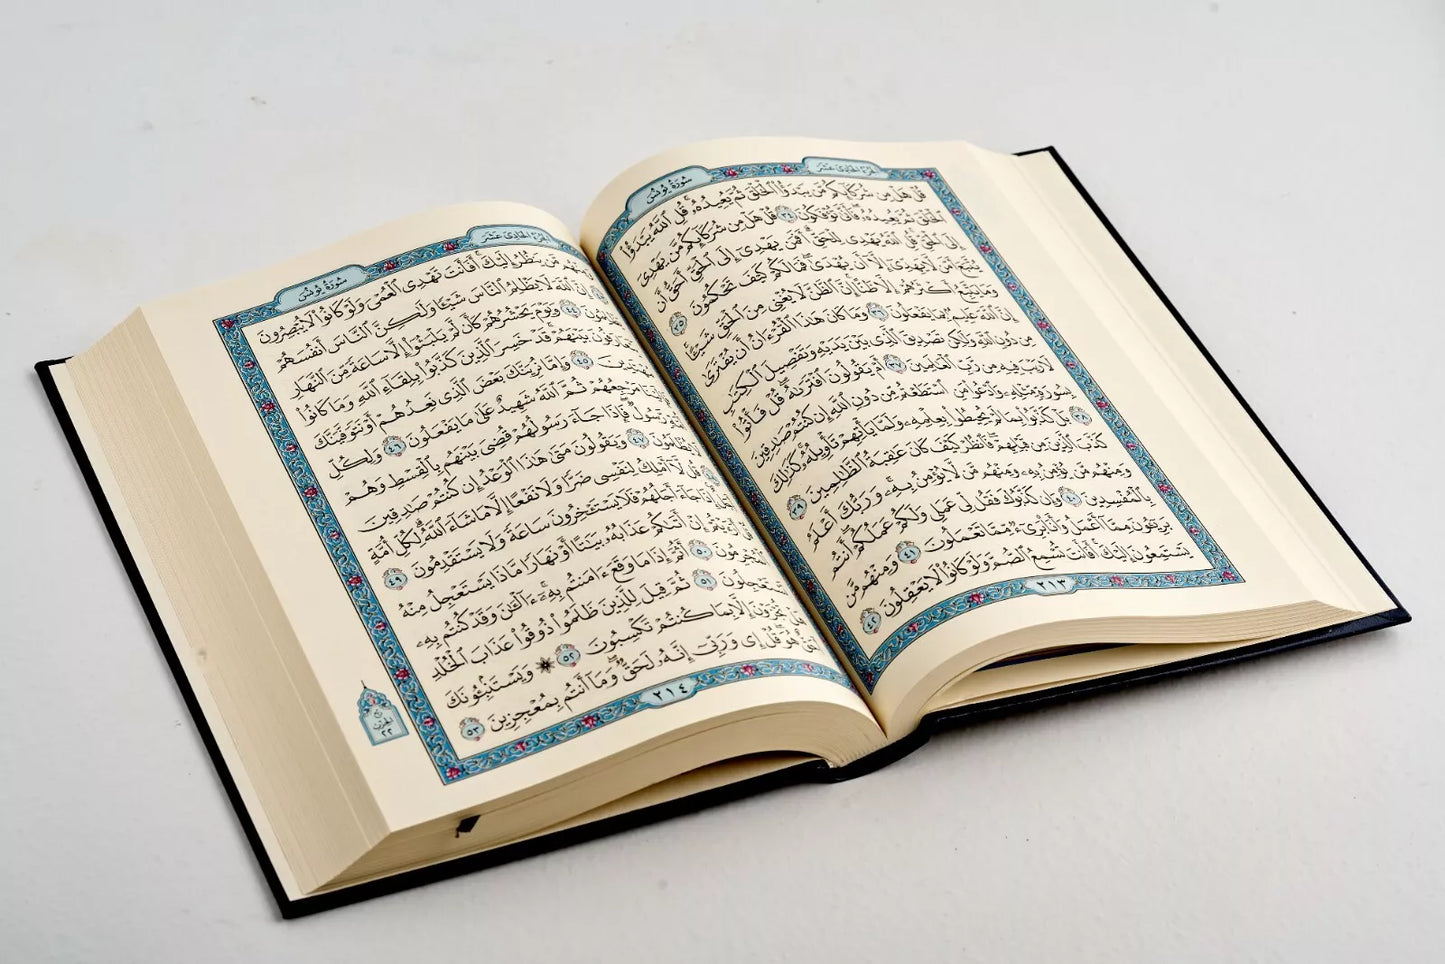 سُورَةُ يُونُسَ
الجُزْءُ الحَادِي عَشَرَ
قُلْ هَلْ مِن شُرَكَآئِكُم مَّن يَبْدَؤُا۟ ٱلْخَلْقَ ثُمَّ يُعِيدُهُۥ ۚ قُلِ ٱللَّهُ يَبْدَؤُا۟
ٱلْخَلْقَ ثُمَّ يُعِيدُهُۥ ۖ فَأَنَّىٰ تُؤْفَكُونَ ٣٤ قُلْ هَلْ مِن شُرَكَآئِكُم مَّن يَهْدِىٓ
إِلَى ٱلْحَقِّ ۚ قُلِ ٱللَّهُ يَهْدِى لِلْحَقِّ ۗ أَفَمَن يَهْدِىٓ إِلَى ٱلْحَقِّ أَحَقُّ أَن
يُتَّبَعَ أَمَّن لَّا يَهِدِّىٓ إِلَّآ أَن يُهْدَىٰ ۖ فَمَا لَكُمْ كَيْفَ تَحْكُمُونَ ٣٥
وَمَا يَتَّبِعُ أَكْثَرُهُمْ إِلَّا ظَنًّا ۚ إِنَّ ٱلظَّنَّ لَا يُغْنِى مِنَ ٱلْحَقِّ شَيْـًٔا ۚ
إِنَّ ٱللَّهَ عَلِيمٌۢ بِمَا يَفْعَلُونَ ٣٦ وَمَا كَانَ هَٰذَا ٱلْقُرْءَانُ أَن يُفْتَرَىٰ
مِن دُونِ ٱللَّهِ وَلَٰكِن تَصْدِيقَ ٱلَّذِى بَيْنَ يَدَيْهِ وَتَفْصِيلَ ٱلْكِتَٰبِ
لَا رَيْبَ فِيهِ مِن رَّبِّ ٱلْعَٰلَمِينَ ٣٧ أَمْ يَقُولُونَ ٱفْتَرَىٰهُ ۖ قُلْ فَأْتُوا۟
بِسُورَةٍ مِّثْلِهِۦ وَٱدْعُوا۟ مَنِ ٱسْتَطَعْتُم مِّن دُونِ ٱللَّهِ إِن كُنتُمْ صَٰدِقِينَ
٣٨ بَلْ كَذَّبُوا۟ بِمَا لَمْ يُحِيطُوا۟ بِعِلْمِهِۦ وَلَمَّا يَأْتِهِمْ تَأْوِيلُهُۥ ۚ كَذَٰلِكَ
كَذَّبَ ٱلَّذِينَ مِن قَبْلِهِمْ ۖ فَٱنظُرْ كَيْفَ كَانَ عَٰقِبَةُ ٱلظَّٰلِمِينَ ٣٩
وَمِنْهُم مَّن يُؤْمِنُ بِهِۦ وَمِنْهُم مَّن لَّا يُؤْمِنُ بِهِۦ ۚ وَرَبُّكَ أَعْلَمُ
بِٱلْمُفْسِدِينَ ٤٠ وَإِن كَذَّبُوكَ فَقُل لِّى عَمَلِى وَلَكُمْ عَمَلُكُمْ ۖ أَنتُم
بَرِيٓـُٔونَ مِمَّآ أَعْمَلُ وَأَنَا۠ بَرِىٓءٌ مِّمَّا تَعْمَلُونَ ٤١ وَمِنْهُم مَّن
يَسْتَمِعُونَ إِلَيْكَ ۚ أَفَأَنتَ تُسْمِعُ ٱلصُّمَّ وَلَوْ كَانُوا۟ لَا يَعْقِلُونَ ٤٢
٢١٣
الجُزْءُ الحَادِي عَشَرَ
سُورَةُ يُونُسَ
مَّن يَنظُرُ إِلَيْكَ ۚ أَفَأَنتَ تَهْدِى ٱلْعُمْىَ وَلَوْ كَانُوا۟ لَا يُبْصِرُونَ
إِنَّ ٱللَّهَ لَا يَظْلِمُ ٱلنَّاسَ شَيْـًٔا وَلَٰكِنَّ ٱلنَّاسَ أَنفُسَهُمْ
٤٤ وَيَوْمَ يَحْشُرُهُمْ كَأَن لَّمْ يَلْبَثُوٓا۟ إِلَّا سَاعَةً مِّنَ ٱلنَّهَارِ
بَيْنَهُمْ ۚ قَدْ خَسِرَ ٱلَّذِينَ كَذَّبُوا۟ بِلِقَآءِ ٱللَّهِ وَمَا كَانُوا۟
٤٥ وَإِمَّا نُرِيَنَّكَ بَعْضَ ٱلَّذِى نَعِدُهُمْ أَوْ نَتَوَفَّيَنَّكَ
مَرْجِعُهُمْ ثُمَّ ٱللَّهُ شَهِيدٌ عَلَىٰ مَا يَفْعَلُونَ ٤٦ وَلِكُلِّ
رَّسُولٌ ۖ فَإِذَا جَآءَ رَسُولُهُمْ قُضِىَ بَيْنَهُم بِٱلْقِسْطِ وَهُمْ
٤٧ وَيَقُولُونَ مَتَىٰ هَٰذَا ٱلْوَعْدُ إِن كُنتُمْ صَٰدِقِينَ
قُل لَّآ أَمْلِكُ لِنَفْسِى ضَرًّا وَلَا نَفْعًا إِلَّا مَا شَآءَ ٱللَّهُ ۗ لِكُلِّ أُمَّةٍ
إِذَا جَآءَ أَجَلُهُمْ فَلَا يَسْتَـْٔخِرُونَ سَاعَةً ۖ وَلَا يَسْتَقْدِمُونَ ٤٩
قُلْ أَرَءَيْتُمْ إِنْ أَتَىٰكُمْ عَذَابُهُۥ بَيَٰتًا أَوْ نَهَارًا مَّاذَا يَسْتَعْجِلُ مِنْهُ
ٱلْمُجْرِمُونَ ٥٠ أَثُمَّ إِذَا مَا وَقَعَ ءَامَنتُم بِهِۦٓ ۚ ءَآلْـَٰٔنَ وَقَدْ كُنتُم بِهِۦ
تَسْتَعْجِلُونَ ٥١ ثُمَّ قِيلَ لِلَّذِينَ ظَلَمُوا۟ ذُوقُوا۟ عَذَابَ ٱلْخُلْدِ
هَلْ تُجْزَوْنَ إِلَّا بِمَا كُنتُمْ تَكْسِبُونَ ٥٢ ۞ وَيَسْتَنۢبِـُٔونَكَ
أَحَقٌّ هُوَ ۖ قُلْ إِى وَرَبِّىٓ إِنَّهُۥ لَحَقٌّ ۖ وَمَآ أَنتُم بِمُعْجِزِينَ ٥٣
٢١٤
الحزب
٢٢